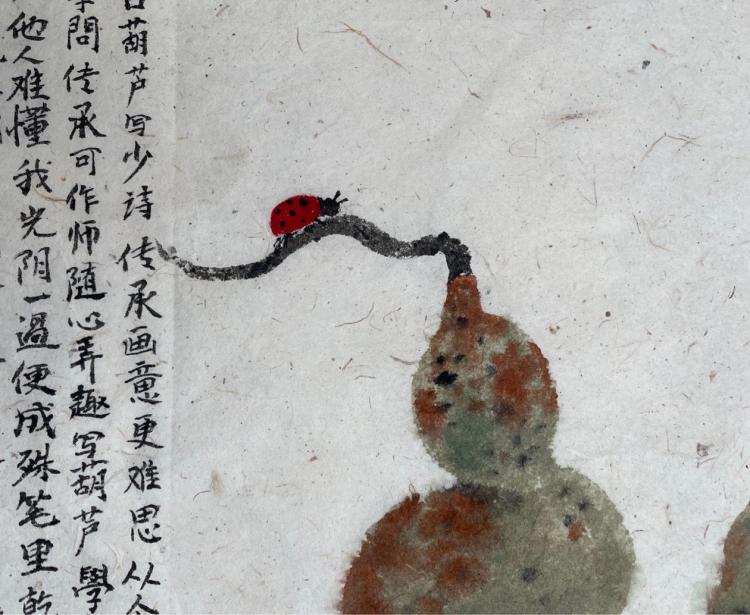 葫芦写少诗 传承画意更难思 从今
問传承可作师随心弄趣写葫芦 學
他人难懂我光阴一過便成殊笔里乾